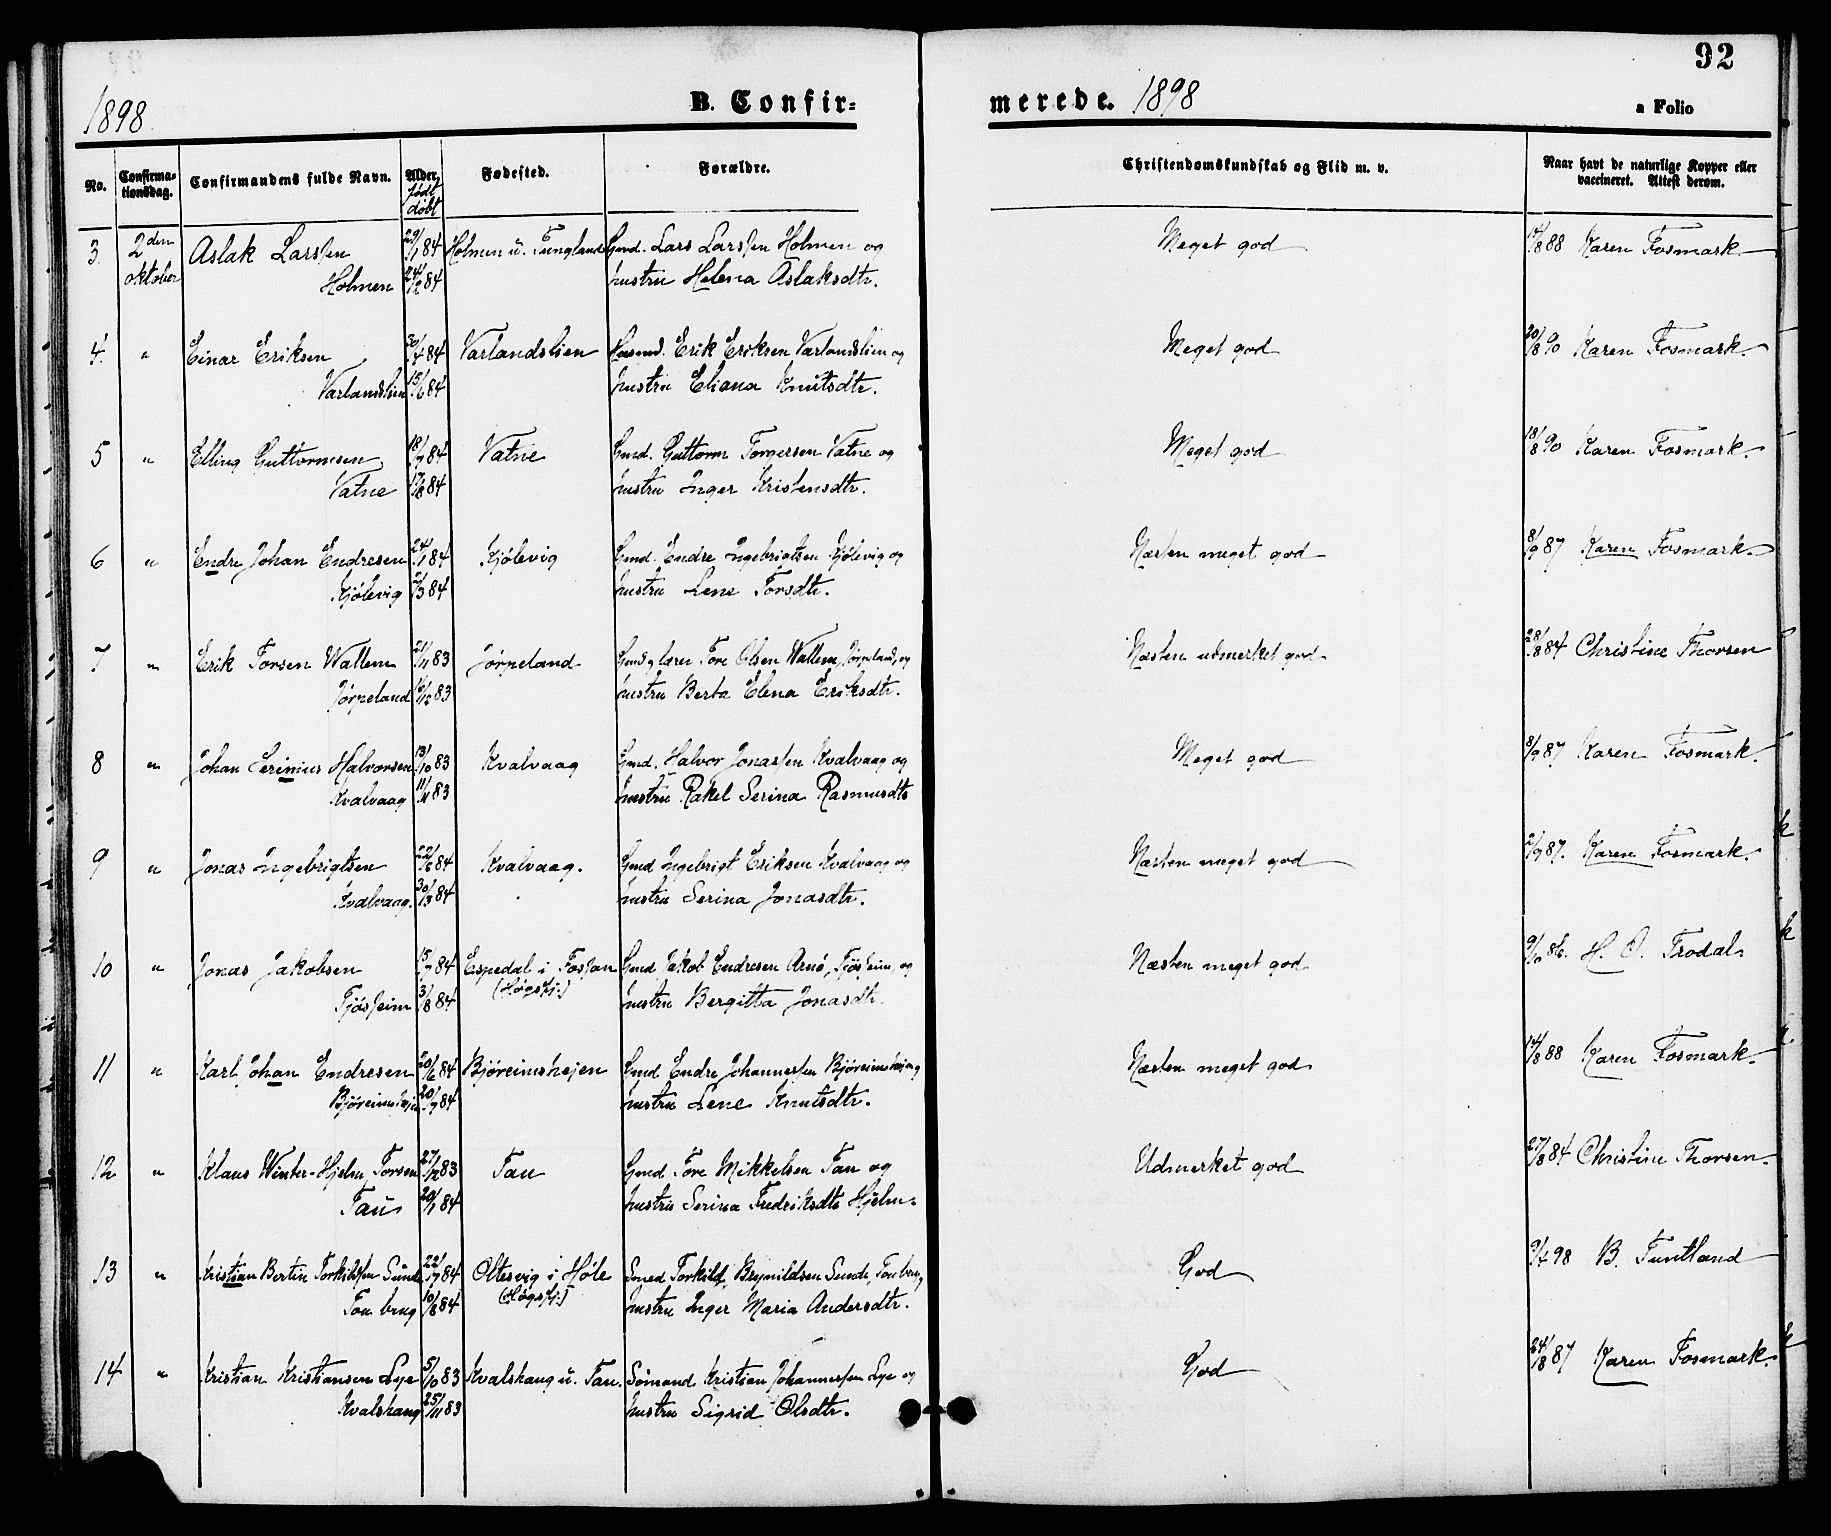 92
1898.
B. Confir-
merede. 1898
a Folio
No.
Confirma-
tionsdag.
Confirmandens fulde Navn.
Alder,
født
døbt
Fødested.
Forældre.
Christendomskundskab og Flid m. v.
Naar havt de naturlige Kopper eller
vaccineret. Attest derom.
3. 2den Aslak Larssen 29/1 84 Holmen u. Tungland Gmd. Lars Larssen Holmen og Meget god 14/8 88 Karen Fosmark
oktober Holmen 24/2 84 hustru Helena Aslaksdtr.
4. " Einar Eriksen 30/4 84 Varlandslien Husmd. Erik Eriksen Varlandslien og Meget god 20/8 90 Karen Fosmark.
Varlandslien 15/6 84 hustru Eliana Knutsdtr.
5 " Elling Guttormsen 18/7 84 Vatne Gmd. Guttorm Tomersen Vatne og Meget god 18/8 90 Karen Fosmark.
Vatne 17/8 84 hustru Inger Kristensdtr.
6 " Endre Johan Endresen 24/1 84 Kjølevig Gmd. Endre Ingebrigtsen Kjølevig og Næsten meget god 8/9 87 Karen Fosmark.
Kjølevig 2/3 84 hustru Lene Torsdtr.
7 " Erik Torsen Wallem 21/11 83 Jørpeland Gmd og lærer Tore Olsen Wallem, Jørpeland, og Næsten udmerket god 28/8 84 Christine Thorsen
Jørpeland 16/12 83 hustru Berta Elena Eriksdtr.
8 " Johan Serinius Halvorsen 13/10 83 Kvalvaag Gmd. Halvor Jonassen Kvalvaag og Meget god 8/9 87 Karen Fosmark.
Kvalvaag 11/11 83 hustru Rakel Serina Rasmusdtr
9 " Jonas Ingebrigtsen 84 Kvalvaag. Gmd Ingebrigt Eriksen Kvalvaag og Næsten meget god 2/9 87. Karen Fosmark.
Kvalvaag. 30/3 84 hustru Serina Jonasdtr.
10 " Jonas Jakobsen 15/7 84 Espedal i Fossan Gmd Jakob Endresen Arnø, Tjøsseim, og Næsten meget god 86. H. O. Trodal.
Tjøsseim 3/8 84 (Høgsfj.) hustru Bergitta Jonasdtr.
11 " Karl Johan Endresen 20/6 84 Bjøreimshejen Gmd Endre Johannessen Bjøreimshejen og Næsten meget god 14/8 88 Karen Fosmark.
Bjøreimshejen 20/7 84 hustru Lene Knutsdtr.
12 " Klaus Winter-Hjelm Torsen 27/12 83 Tau Gmd Tore Mikkelsen Tau og Udmerket god 27/8 84 Christine Thorsen.
Tau 20/1 84 hustru Serina Fredriksdtr Hjelm.
13 " Kristian Bertin Torkildsen Sunde 22/7 84 Oltesvig i Høle Smed Torkild Brynildsen Sunde, Tou brug, God 9/4 98 B. Tuntland
Tou brug 10/8 84 (Høgsfj.) hustru Inger Maria Andersdtr.
14 " Kristian Kristiansen Lye 5/10 83 Kvalshaug u. Tau. Sømand Kristian Johannessen Lye og God 24/8 87 Karen Fosmark.
Kvalshaug 25/11 83 hustru Sigrid Olsdtr.